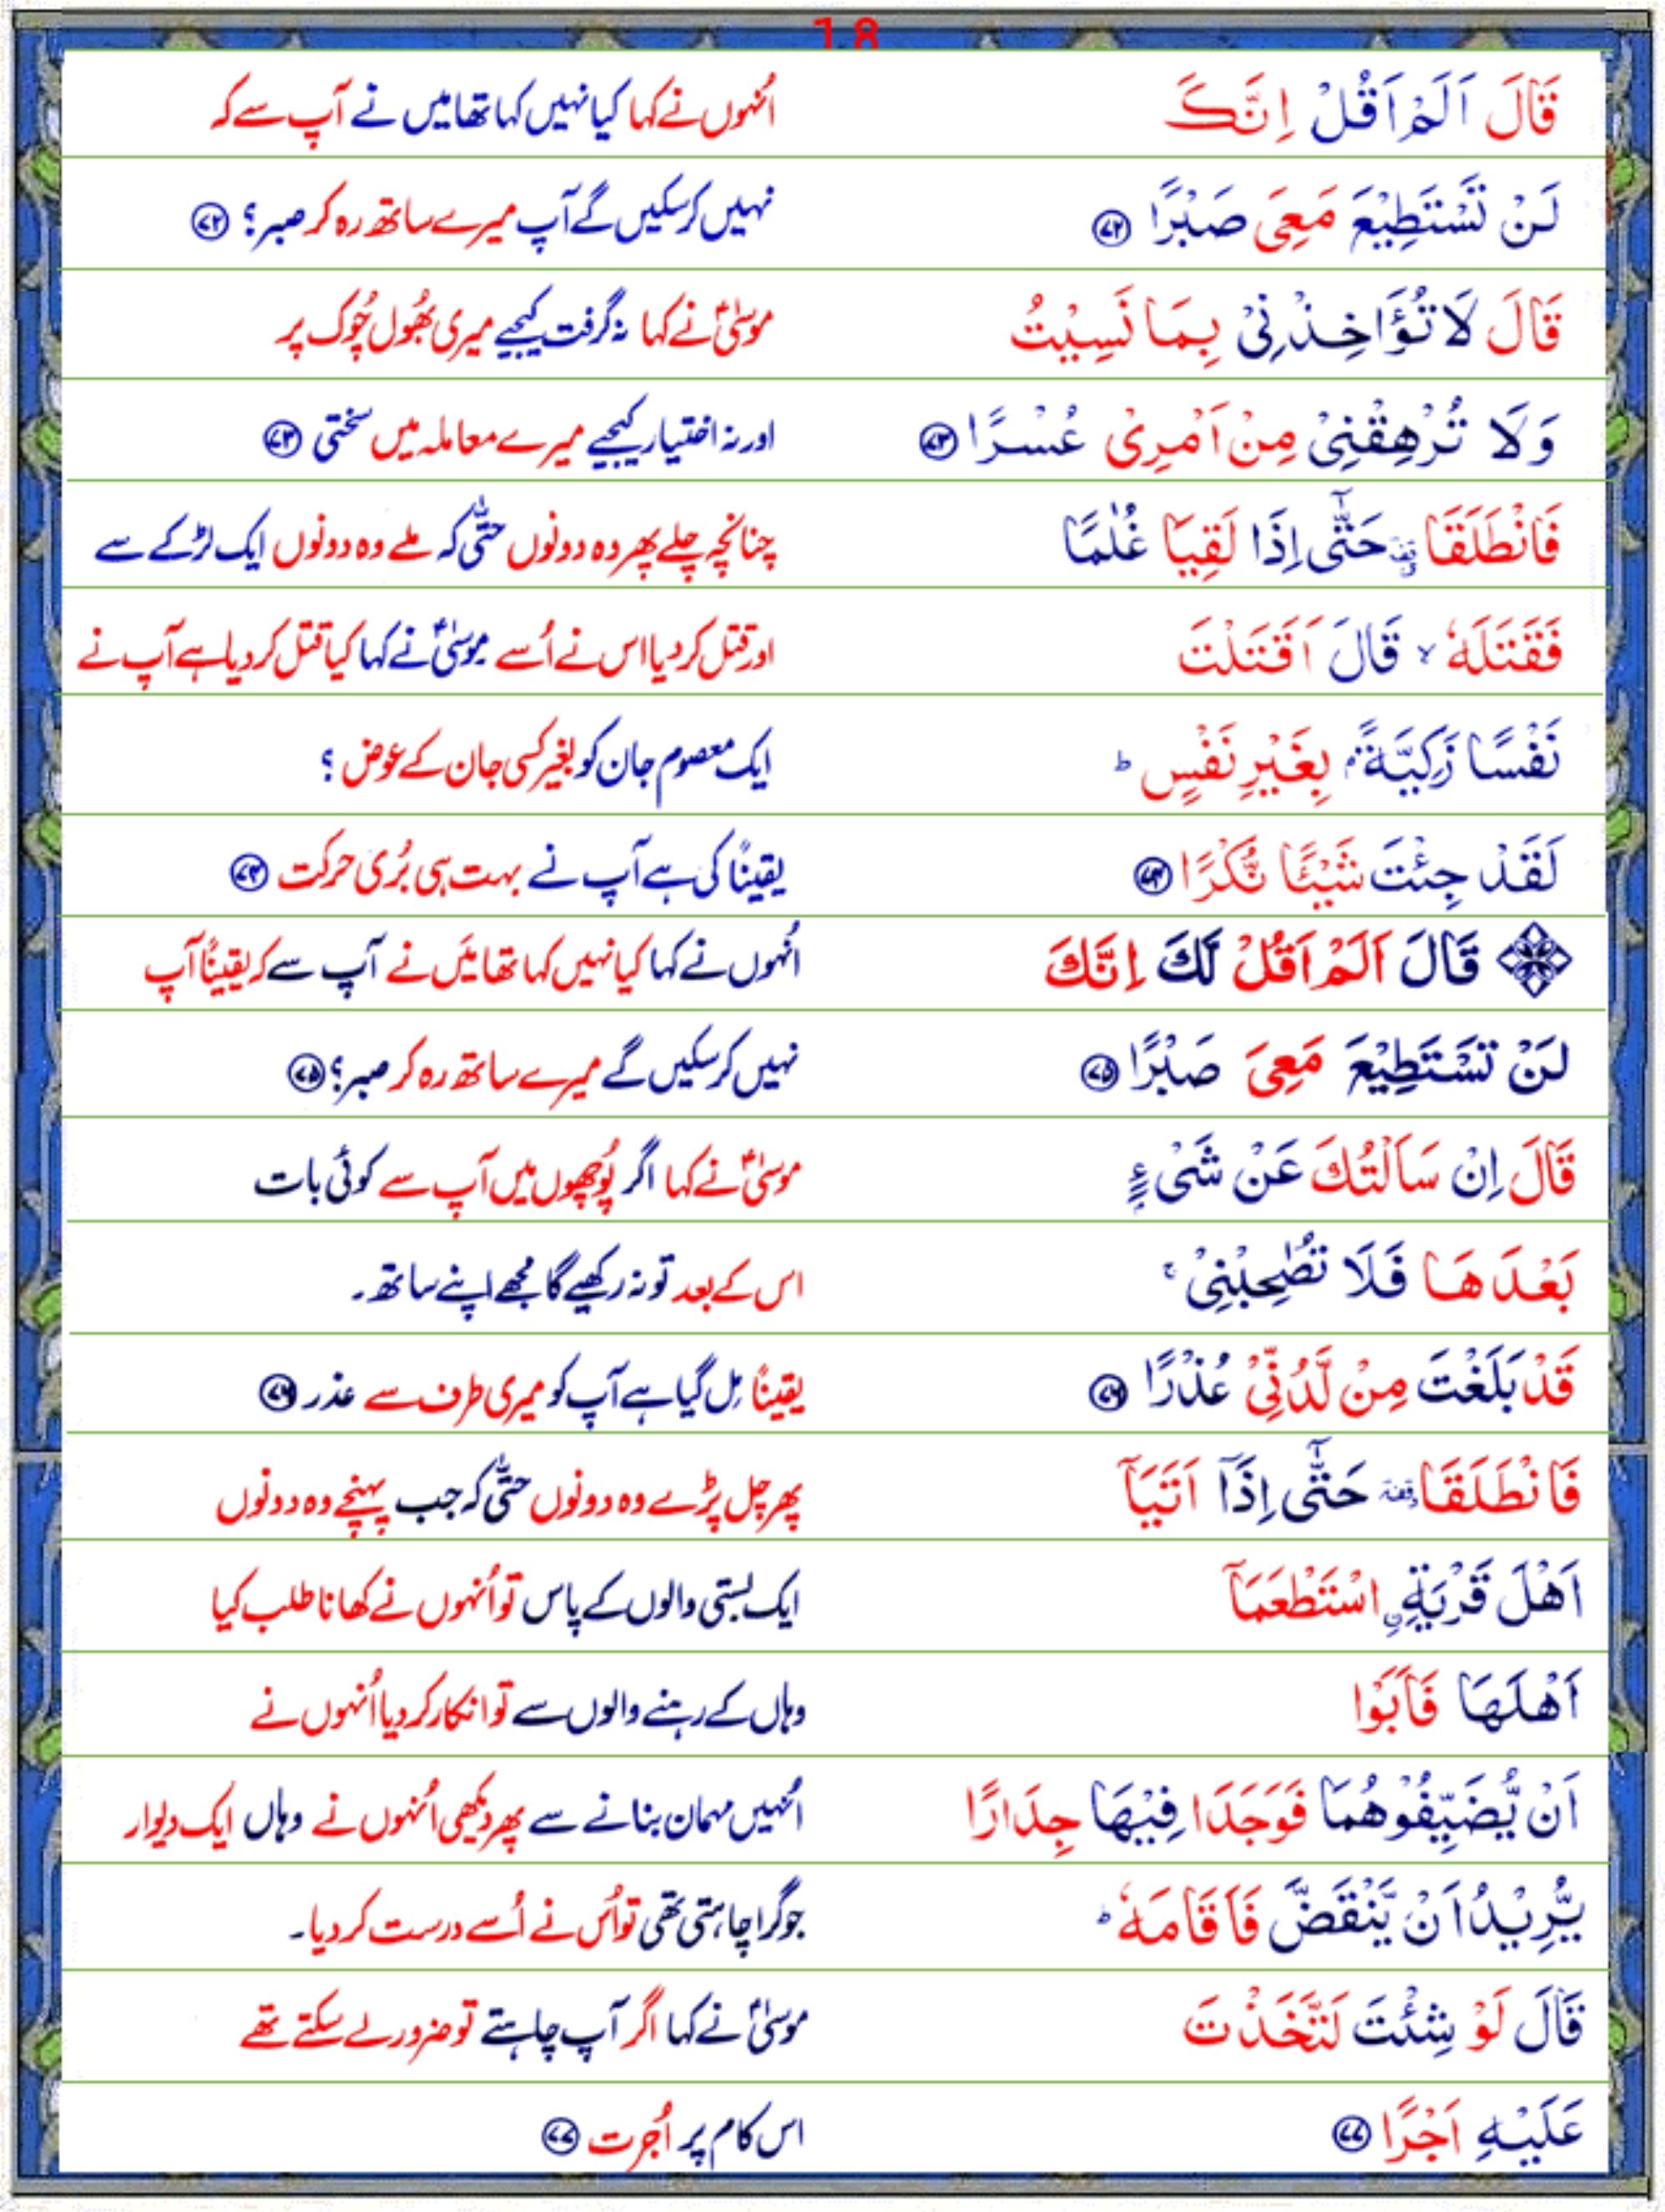 18
قَالَ اَلَمْ اَقُلْ اِنَّكَ
اُنہوں نے کہا کیا نہیں کہا تھا میں نے آپ سے کہ
لَنْ تَسْتَطِيْعَ مَعِىَ صَبْرًا ۷۲
نہیں کرسکیں گے آپ میرے ساتھ رہ کر صبر؟ ۷۲
قَالَ لَا تُؤَاخِذْنِىْ بِمَا نَسِيْتُ
موسیٰؑ نے کہا نہ گرفت کیجیے میری بھُول چُوک پر
وَلَا تُرْهِقْنِىْ مِنْ اَمْرِىْ عُسْرًا ۷۳
اور نہ اختیار کیجیے میرے معاملہ میں سختی ۷۳
فَانْطَلَقَا وقفة حَتّٰٓى اِذَا لَقِيَا غُلٰمًا
چنانچہ چلے پھر وہ دونوں حتّٰی کہ ملے وہ دونوں ایک لڑکے سے
فَقَتَلَهٗ ۙ قَالَ اَقَتَلْتَ
اور قتل کردیا اس نے اُسے موسیٰؑ نے کہا کیا قتل کردیا ہے آپ نے
نَفْسًا زَكِيَّةً ۢ بِغَيْرِ نَفْسٍ ؕ
ایک معصوم جان کو بغیر کسی جان کے عوض ؟
لَقَدْ جِئْتَ شَيْـًٔا نُّكْرًا ۷۴
یقیناً کی ہے آپ نے بہت ہی بُری حرکت ۷۴
قَالَ اَلَمْ اَقُلْ لَّكَ اِنَّكَ
اُنہوں نے کہا کیا نہیں کہا تھا میَں نے آپ سے کہ یقیناً آپ
لَنْ تَسْتَطِيْعَ مَعِىَ صَبْرًا ۷۵
نہیں کرسکیں گے میرے ساتھ رہ کر صبر؟ ۷۵
قَالَ اِنْ سَاَلْتُكَ عَنْ شَىْءٍۭ
موسیٰؑ نے کہا اگر پُوچھوں میں آپ سے کوئی بات
بَعْدَهَا فَلَا تُصٰحِبْنِىْ ۚ
اس کے بعد تو نہ رکھیے گا مجھے اپنے ساتھ۔
قَدْ بَلَغْتَ مِنْ لَّدُنِّىْ عُذْرًا ۷۶
یقیناً مِل گیا ہے آپ کو میری طرف سے عذر ۷۶
فَانْطَلَقَا وقفة حَتّٰٓى اِذَاۤ اَتَيَاۤ
پھر چل پڑے وہ دونوں حتّٰی کہ جب پہنچے وہ دونوں
اَهْلَ قَرْيَةِ ۨ اسْتَطْعَمَاۤ
ایک بستی والوں کے پاس تو اُنہوں نے کھانا طلب کیا
اَهْلَهَا فَاَبَوْا
وہاں کے رہنے والوں سے تو انکار کردیا اُنہوں نے
اَنْ يُّضَيِّفُوْهُمَا فَوَجَدَا فِيْهَا جِدَارًا
اُنہیں مہمان بنانے سے پھر دیکھی اُنہوں نے وہاں ایک دیوار
يُّرِيْدُ اَنْ يَّنْقَضَّ فَاَقَامَهٗ ؕ
جو گرا چاہتی تھی تو اُس نے اُسے درست کردیا۔
قَالَ لَوْ شِئْتَ لَتَّخَذْتَ
موسیٰؑ نے کہا اگر آپ چاہتے تو ضرور لے سکتے تھے
عَلَيْهِ اَجْرًا ۷۷
اس کام پر اُجرت ۷۷